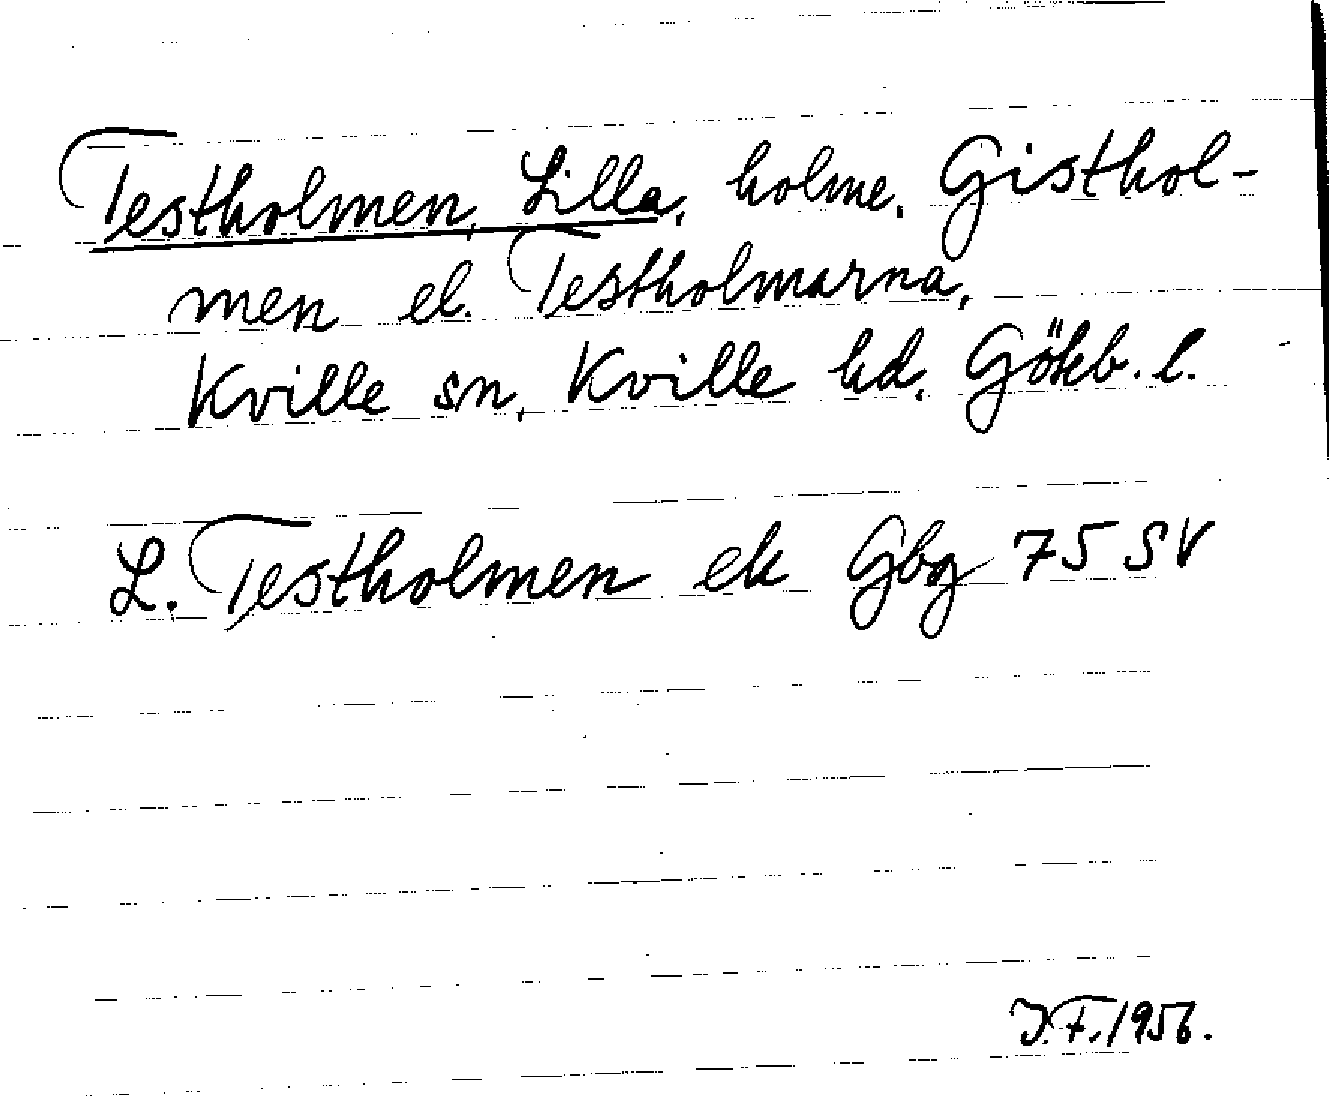 Testholmen, Lilla, holme, Gisthol-
men el. Testholmarna,
Kville sn, Kville hd, Göteb. l.
L. Testholmen ek Gbg 75 SV
J.F. 1956.